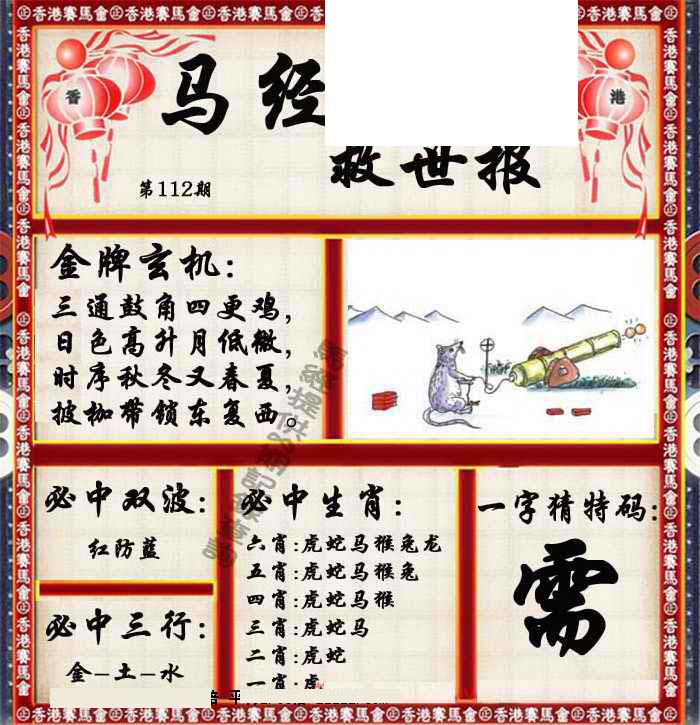 香港賽馬會
香 港
马 经
救世报
第112期
金牌玄机:
三通鼓角四更鸡,
日色高升月低微,
时序秋冬又春夏,
披枷带锁东复西。
必中双波:
红防蓝
必中三行:
金-土-水
必中生肖:
六肖:虎蛇马猴兔龙
五肖:虎蛇马猴兔
四肖:虎蛇马猴
三肖:虎蛇马
二肖:虎蛇
一肖:虎
一字猜特码:
需